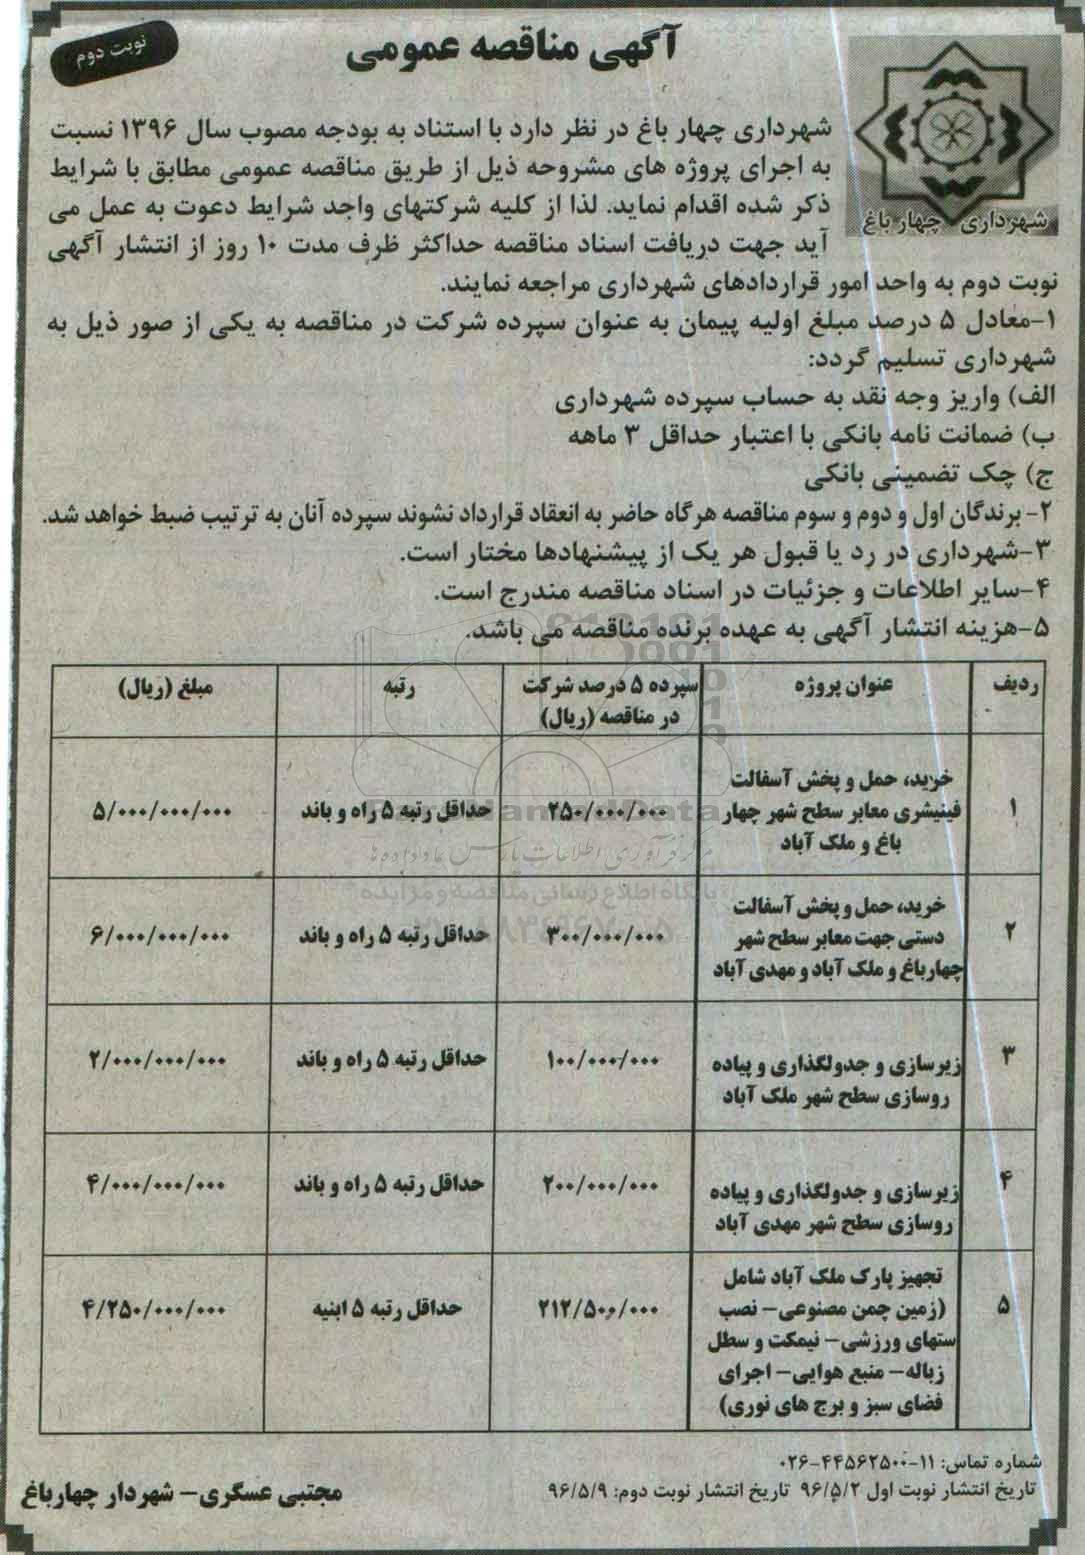 آگهی مناقصه عمومی
نوبت دوم
شهرداری چهار باغ
شهرداری چهار باغ در نظر دارد با استناد به بودجه مصوب سال ۱۳۹۶ نسبت
به اجرای پروژه های مشروحه ذیل از طریق مناقصه عمومی مطابق با شرایط
ذکر شده اقدام نماید. لذا از کلیه شرکتهای واجد شرایط دعوت به عمل می
آید جهت دریافت اسناد مناقصه حداکثر ظرف مدت ۱۰ روز از انتشار آگهی
نوبت دوم به واحد امور قراردادهای شهرداری مراجعه نمایند.
۱-معادل ۵ درصد مبلغ اولیه پیمان به عنوان سپرده شرکت در مناقصه به یکی از صور ذیل به
شهرداری تسلیم گردد:
الف) واریز وجه نقد به حساب سپرده شهرداری
ب) ضمانت نامه بانکی با اعتبار حداقل ۳ ماهه
ج) چک تضمینی بانکی
۲- برندگان اول و دوم و سوم مناقصه هرگاه حاضر به انعقاد قرارداد نشوند سپرده آنان به ترتیب ضبط خواهد شد.
۳-شهرداری در رد یا قبول هر یک از پیشنهادها مختار است.
۴-سایر اطلاعات و جزئیات در اسناد مناقصه مندرج است.
۵-هزینه انتشار آگهی به عهده برنده مناقصه می باشد.
ردیف عنوان پروژه سپرده ۵ درصد شرکت رتبه مبلغ (ریال)
در مناقصه (ریال)
خرید، حمل و پخش آسفالت
۱ فینیشری معابر سطح شهر چهار ۲۵۰/۰۰۰/۰۰۰ حداقل رتبه ۵ راه و باند ۵/۰۰۰/۰۰۰/۰۰۰
باغ و ملک آباد
مرکز فرآوری اطلاعات پارس نماد داده ها
پایگاه اطلاع رسانی مناقصه و مزایده
خرید، حمل و پخش آسفالت
۲ دستی جهت معابر سطح شهر ۳۰۰/۰۰۰/۰۰۰ حداقل رتبه ۵ راه و باند ۶/۰۰۰/۰۰۰/۰۰۰
چهارباغ و ملک آباد و مهدی آباد
۳ زیرسازی و جدولگذاری و پیاده ۱۰۰/۰۰۰/۰۰۰ حداقل رتبه ۵ راه و باند ۲/۰۰۰/۰۰۰/۰۰۰
روسازی سطح شهر ملک آباد
۴ زیرسازی و جدولگذاری و پیاده ۲۰۰/۰۰۰/۰۰۰ حداقل رتبه ۵ راه و باند ۴/۰۰۰/۰۰۰/۰۰۰
روسازی سطح شهر مهدی آباد
تجهیز پارک ملک آباد شامل
۵ (زمین چمن مصنوعی- نصب ۲۱۲/۵۰۰/۰۰۰ حداقل رتبه ۵ ابنیه ۴/۲۵۰/۰۰۰/۰۰۰
ستهای ورزشی- نیمکت و سطل
زباله- منبع هوایی- اجرای
فضای سبز و برج های نوری)
شماره تماس: ۱۱-۴۴۵۶۲۵۰۰-۰۲۶
تاریخ انتشار نوبت اول ۹۶/۵/۲ تاریخ انتشار نوبت دوم: ۹۶/۵/۹
مجتبی عسگری- شهردار چهارباغ